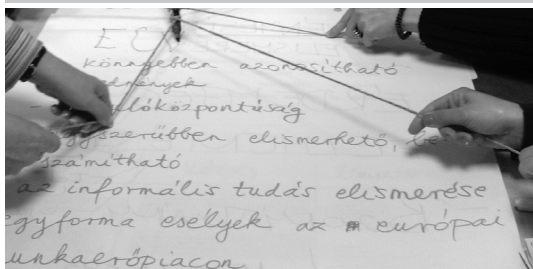 könnyebben azonosítható
egyszerűbben elismerhető, be
számítható
az informális tudás elismerése
egyforma esélyek az európai
munkaerőpiacon